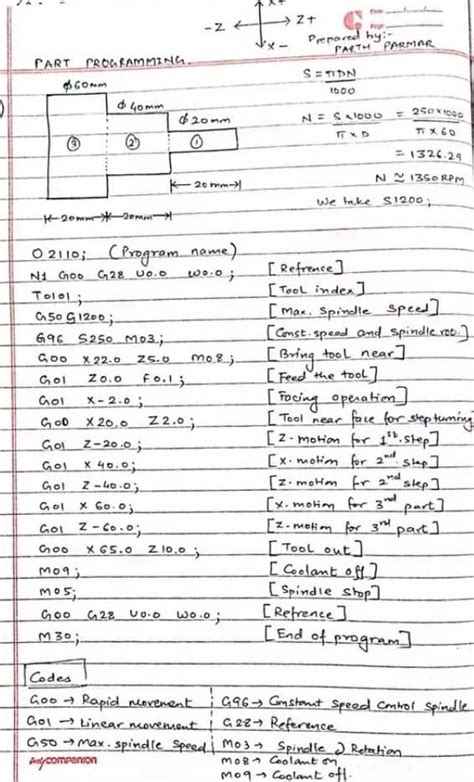 X+
-Z Z+
X-
Prepared by:-
PARTH PARMAR
PART PROGRAMMING.
ϕ60mm
ϕ 40mm
ϕ 20mm
③ ② ①
20mm
20mm 20mm
S = πDN
1000
N = S x1000 = 250x1000
π x D π x 60
= 1326.29
N ≈ 1350 RPM
We take S1200;
O 2110; (Program name)
N1 G00 G28 U0.0 W0.0; [Refrence]
T0101; [Tool index]
G50 S1200; [Max. spindle speed]
G96 S250 M03; [Const. speed and spindle rot.]
G00 X22.0 Z5.0 M08; [Bring tool near]
G01 Z0.0 F0.1; [Feed the tool]
G01 X-2.0; [Facing operation]
G00 X20.0 Z2.0; [Tool near face for stepturning]
G01 Z-20.0; [Z-motion for 1st step]
G01 X40.0; [X-motion for 2nd step]
G01 Z-40.0; [Z-motion fr 2nd step]
G01 X60.0; [X-motion for 3rd part]
G01 Z-60.0; [Z-motion for 3rd part]
G00 X65.0 Z10.0; [Tool out]
M09; [Coolant off]
M05; [Spindle stop]
G00 G28 U0.0 W0.0; [Refrence]
M30; [End of program]
Codes
G00 → Rapid movement G96 → Constant Speed Control Spindle
G01 → Linear movement G28 → Reference
G50 → Max. spindle speed M03 → Spindle Rotation
companion M08 → Coolant on
M09 → Coolant off.